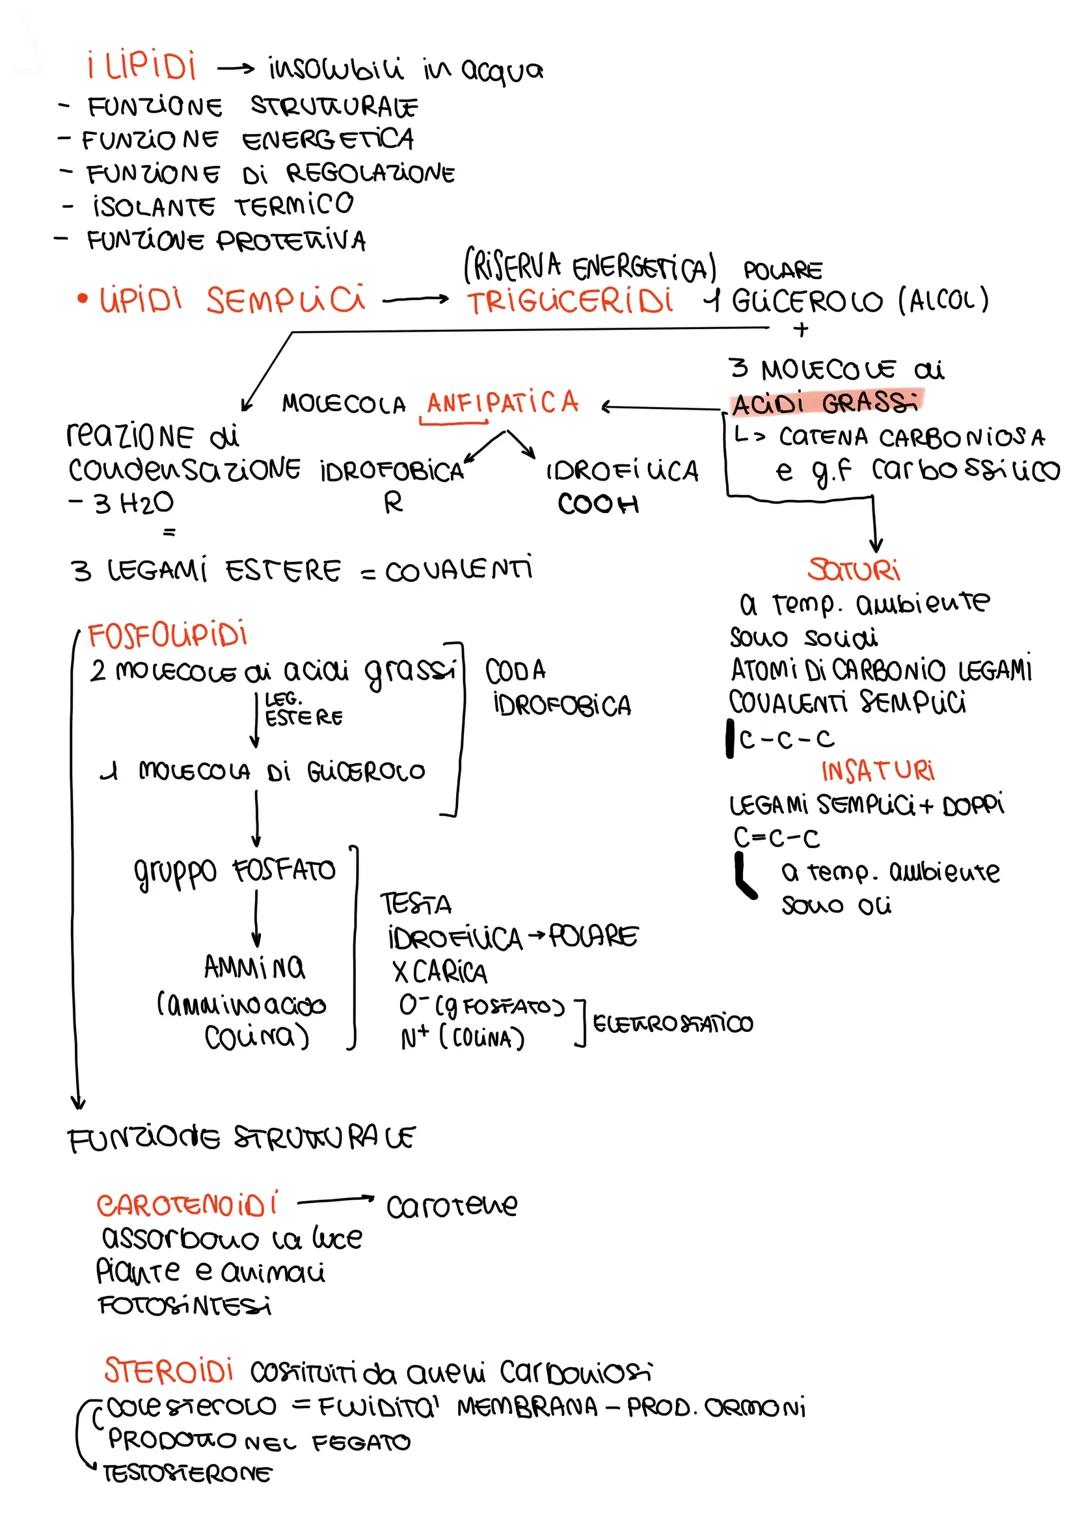 i LIPIDI → insolubili in acqua
- FUNZIONE STRUTTURALE
- FUNZIONE ENERGETICA
- FUNZIONE DI REGOLAZIONE
- ISOLANTE TERMICO
- FUNZIONE PROTETTIVA
(RISERVA ENERGETICA) POLARE
• LIPIDI SEMPLICI → TRIGLICERIDI 1 GLICEROLO (ALCOL)
+
3 MOLECOLE di
MOLECOLA ANFIPATICA ← ACIDI GRASSI
↳ CATENA CARBONIOSA
e g.f carbossilico
reazione di
condensazione
- 3 H2O
=
IDROFOBICA
R
IDROFILICA
COOH
3 LEGAMI ESTERE = COVALENTI
SATURI
a temp. ambiente
sono solidi
ATOMI DI CARBONIO LEGAMI
COVALENTI SEMPLICI
C-C-C
INSATURI
LEGAMI SEMPLICI + DOPPI
C=C-C
a temp. ambiente
sono oli
FOSFOLIPIDI
2 MOLECOLE di acidi grassi
LEG.
ESTERE
1 MOLECOLA DI GLICEROLO
CODA
IDROFOBICA
gruppo FOSFATO
AMMINA
(amminoacido
colina)
TESTA
IDROFILICA → POLARE
X CARICA
O- (g FOSFATO)
N+ (COLINA)
ELETTROSTATICO
FUNZIONE STRUTTURALE
CAROTENOIDI → carotene
assorbono la luce
Piante e animali
FOTOSINTESI
STEROIDI costituiti da anelli carboniosi
colesterolo = FLUIDITA' MEMBRANA - PROD. ORMONI
PRODOTTO NEL FEGATO
TESTOSTERONE